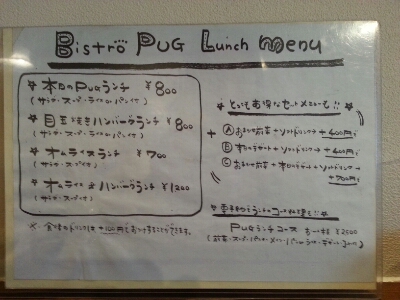 Bistro PUG Lunch menu
☆ 本日のPugランチ ¥800
(サラダ・スープ・ライスorパン付)
☆ 目玉焼きハンバーグランチ ¥800
(サラダ・スープ・ライスorパン付)
☆ オムライスランチ ¥700
(サラダ・スープ付)
☆ オムライス & ハンバーグランチ ¥1200
(サラダ・スープ付)
☆ とってもお得なセットメニューも!!
+ Ⓐ おまかせ前菜 + ソフトドリンク → +400円
Ⓑ 本日のデザート + ソフトドリンク → +400円
Ⓒ おまかせ前菜 + 本日のデザート + ソフトドリンク → +700円
Pugランチコース お一人様 ¥2500